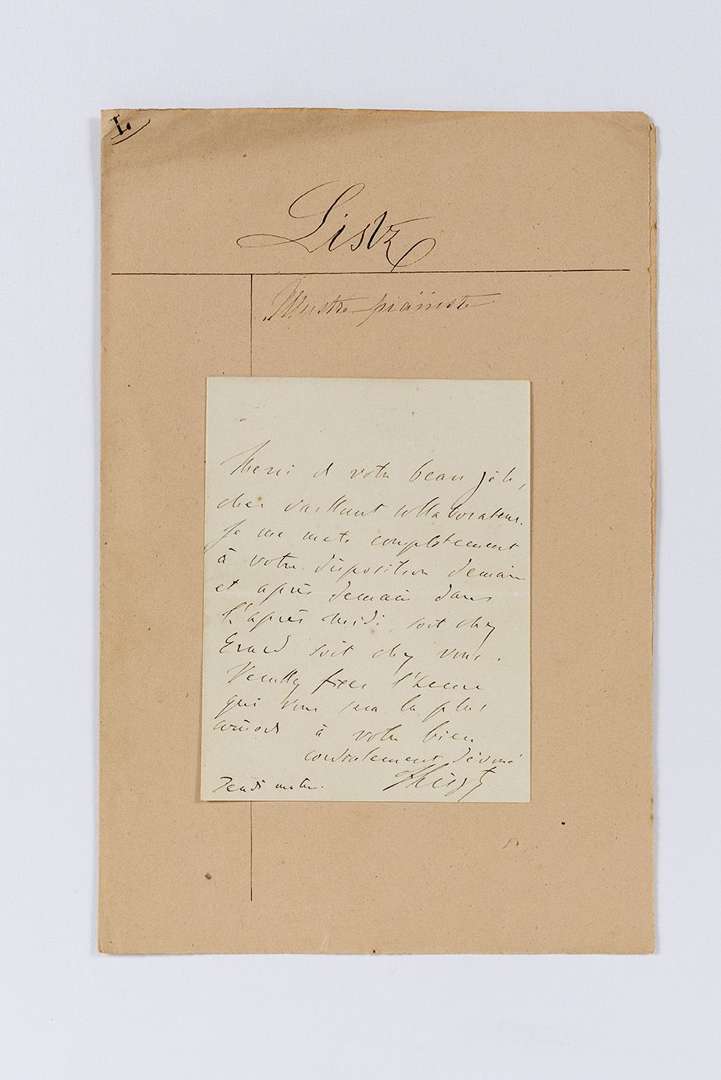 L.
Listz
Illustre pianiste
Merci de votre beau zèle,
cher vaillant collaborateur.
Je me mets complètement
à votre disposition demain
et après demain dans
l'après midi, soit chez
Erard soit chez vous.
Veuillez fixer l'heure
qui vous sera la plus
comode à votre bien
cordialement dévoué
FLiszt
Jeudi matin.